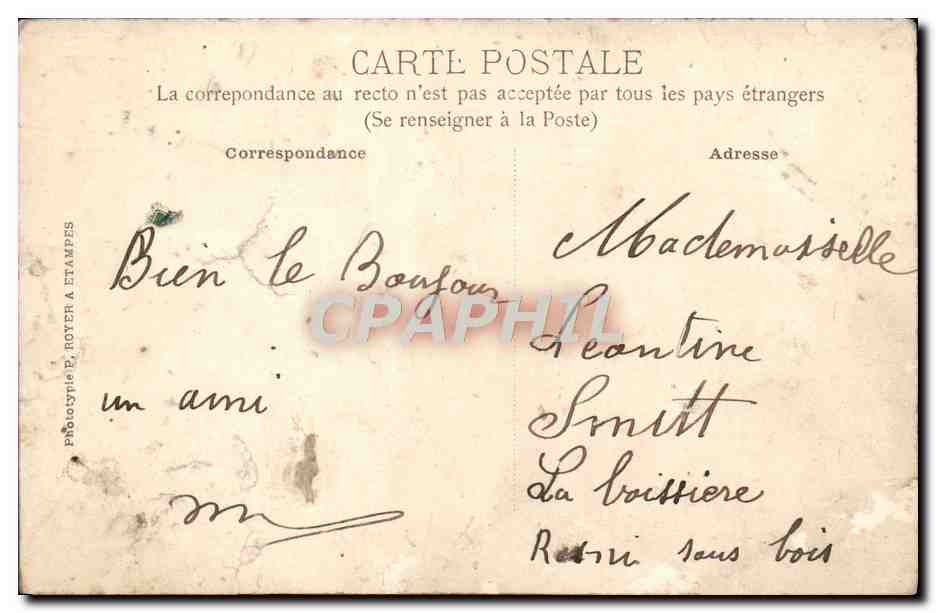 CARTE POSTALE
La correpondance au recto n'est pas acceptée par tous les pays étrangers
(Se renseigner à la Poste)
Correspondance
Adresse
Phototypie P. ROYER A ETAMPES
Bien le Boujour
un ami
Mademoisselle
Leontine
Smitt
La boissiere
Rosni sous bois
CPAPHIL